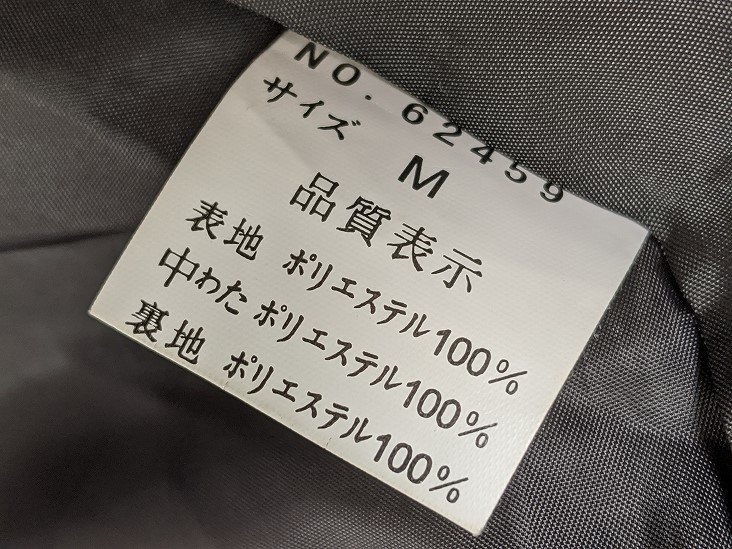 NO. 62459
サイズ M
品質表示
表地 ポリエステル100%
中わた ポリエステル100%
裏地 ポリエステル100%